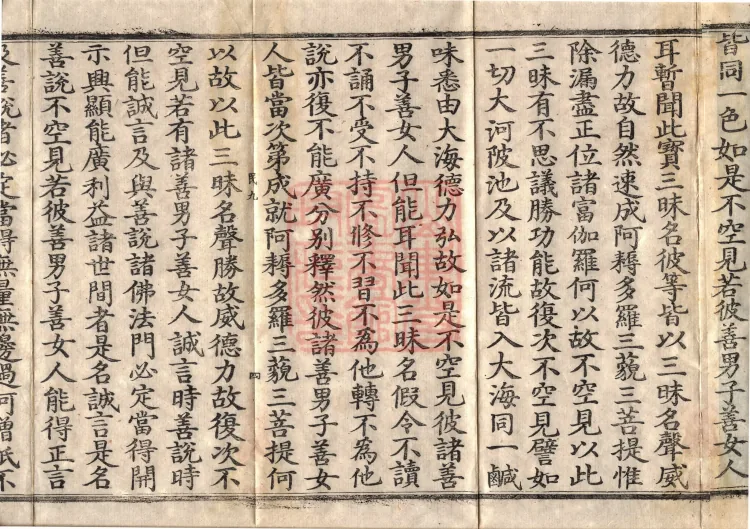 皆同一色如是不空見若彼善男子善女人
耳暫聞此寶三昧名彼等皆以三昧名聲威
德力故自然速成阿耨多羅三藐三菩提惟
除漏盡正位諸富伽羅何以故不空見以此
三昧有不思議勝功能故復次不空見譬如
一切大河陂池及以諸流皆入大海同一鹹
味悉由大海德力弘故如是不空見彼諸善
男子善女人但能耳聞此三昧名假令不讀
不誦不受不持不修不習不為他轉不為他
說亦復不能廣分別釋然彼諸善男子善女
人皆當次第成就阿耨多羅三藐三菩提何
民九
四
以故以此三昧名聲勝故威德力故復次不
空見若有諸善男子善女人誠言時善說時
但能誠言及與善說諸佛法門必定當得開
示興顯能廣利益諸世間者是名誠言是名
善說不空見若彼善男子善女人能得正言
及善說者必定當得無量無邊過阿僧祇不